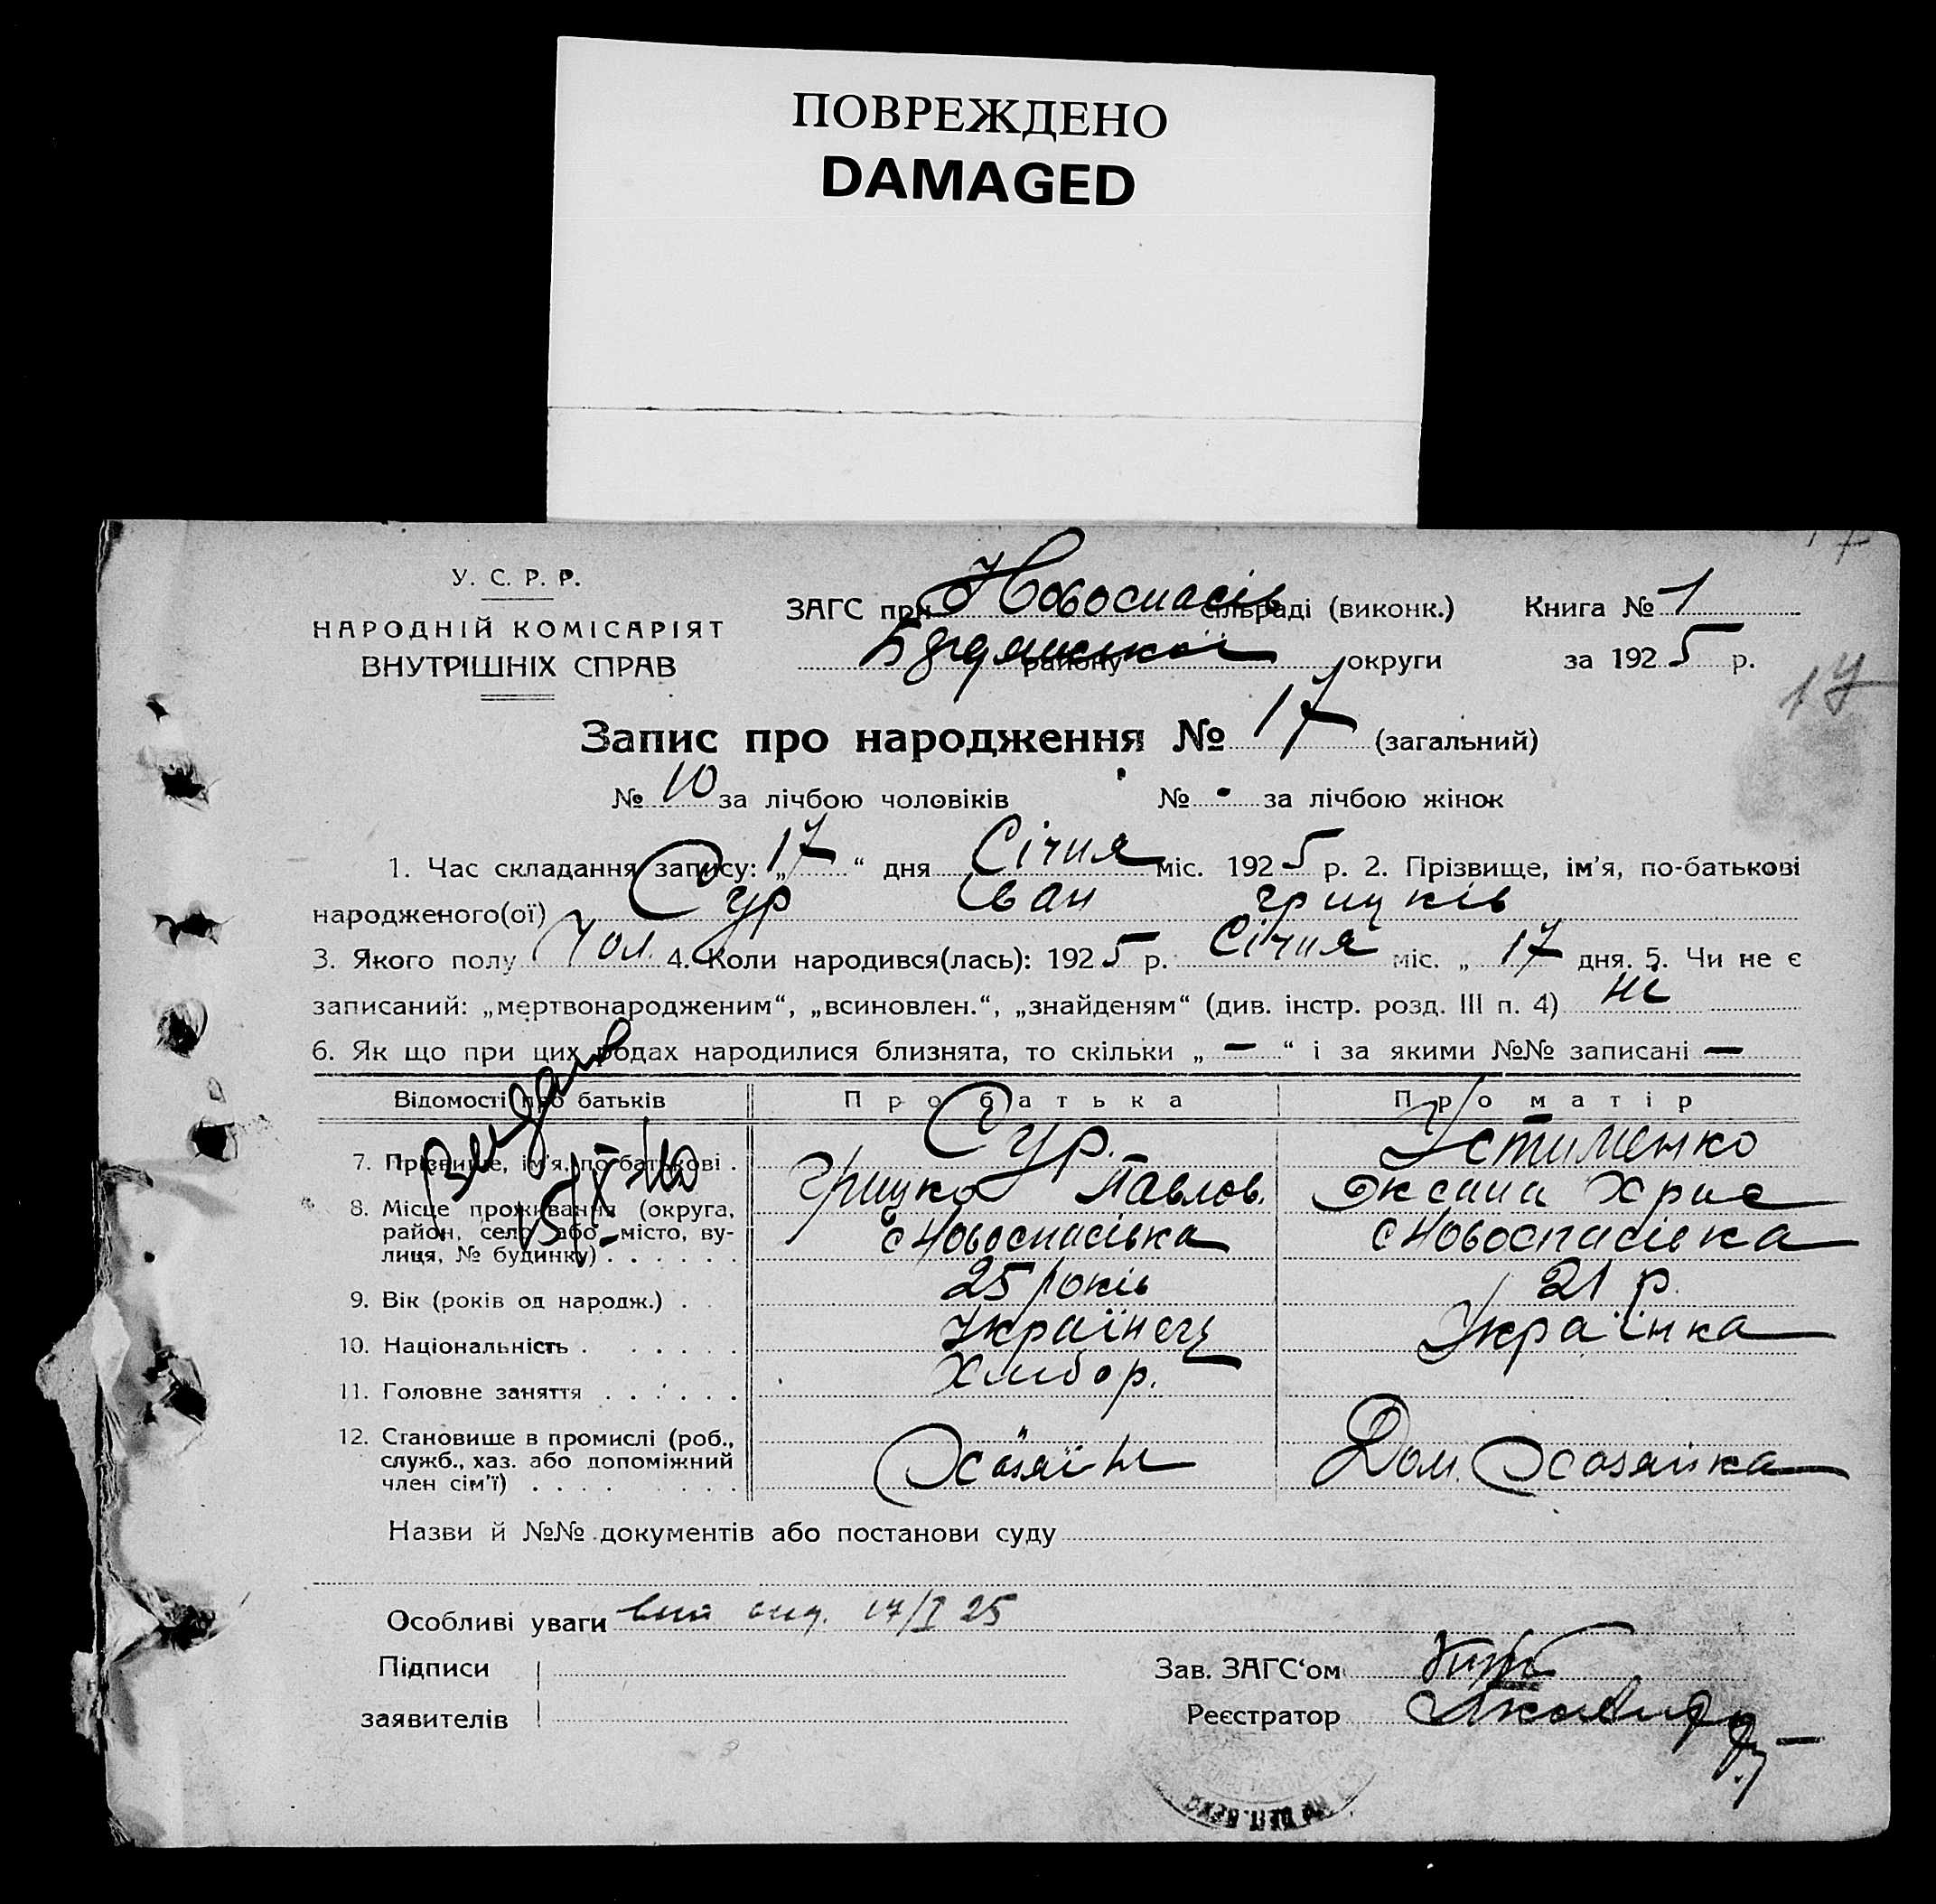 ПОВРЕЖДЕНО
DAMAGED
У. С. Р. Р.
НАРОДНІЙ КОМІСАРІЯТ
ВНУТРІШНІХ СПРАВ
ЗАГС при Новоспасів сільраді (виконк.) Книга № 1
району округи за 1925 р.
17
Запис про народження № 17 (загальний)
№ 10 за лічбою чоловіків № - за лічбою жінок
1. Час складання запису: „17“ дня Січня міс. 1925 р. 2. Прізвище, ім'я, по-батькові
народженого(ої) Сур Іван Грицків
3. Якого полу Чол. 4. Коли народився(лась): 1925 р. Січня міс. „17 дня. 5. Чи не є
записаний: „мертвонародженим“, „всиновлен.“, „знайденям“ (див. інстр. розд. III п. 4) ні
6. Як що при цих родах народилися близнята, то скільки „—“ і за якими №№ записані —
Відомості про батьків Про батька Про матір
7. Прізвище, ім'я, по батькові . Сур. Грицко Павлов. Устименко Оксана Хрис
8. Місце проживання (округа,
район, село або місто, ву-
лиця, № будинку) . . . . . . с Новоспасівка с Новоспасівка
9. Вік (років од народж.) . . 25 років 21 р.
10. Національність . . . . . . Українець Українка
11. Головне заняття . . . . . . Хлибор.
12. Становище в промислі (роб.,
служб., хаз. або допоміжний
член сім'ї) . . . . . . . . Хазяїн Дом. Хозяйка
Назви й №№ документів або постанови суду
Особливі уваги 17/I 25
Підписи
заявителів
Зав. ЗАГС'ом
Реєстратор